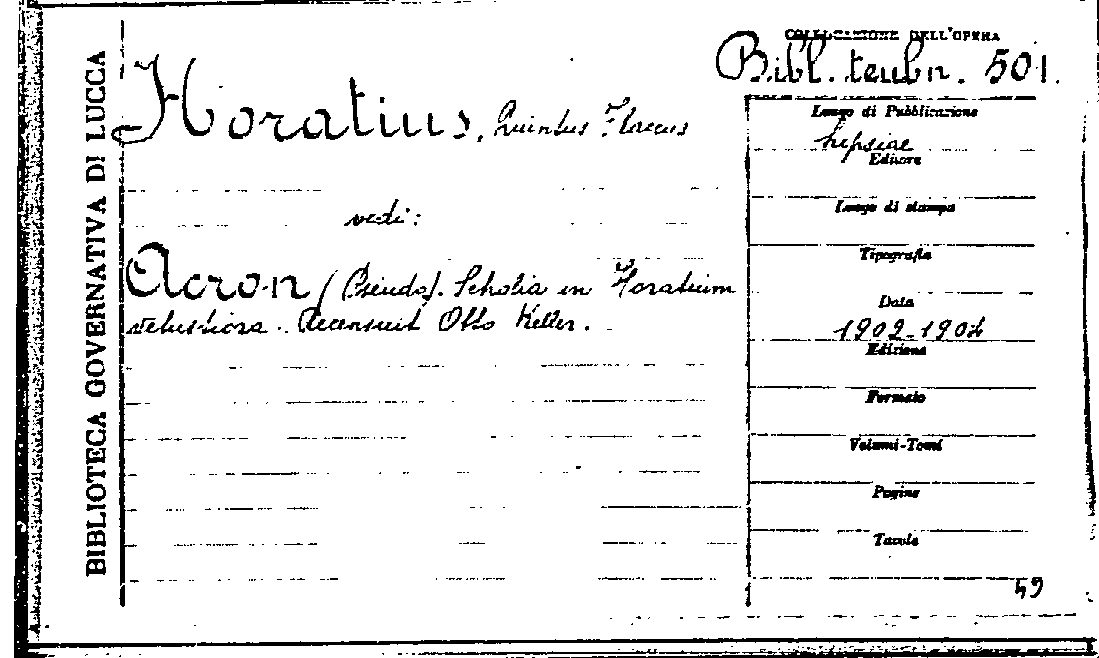 BIBLIOTECA GOVERNATIVA DI LUCCA
COLLOCAZIONE DELL'OPERA
Bibl. teubn. 501.
Horatius, Quintus Flaccus
vedi:
Acron (Pseudo). Scholia in Horatium
vetustiora. Recensuit Otto Keller.
Luogo di Pubblicazione
Lipsiae
Editore
Luogo di stampa
Tipografia
Data
1902-1904
Edizione
Formato
Volumi-Tomi
Pagine
Tavole
49